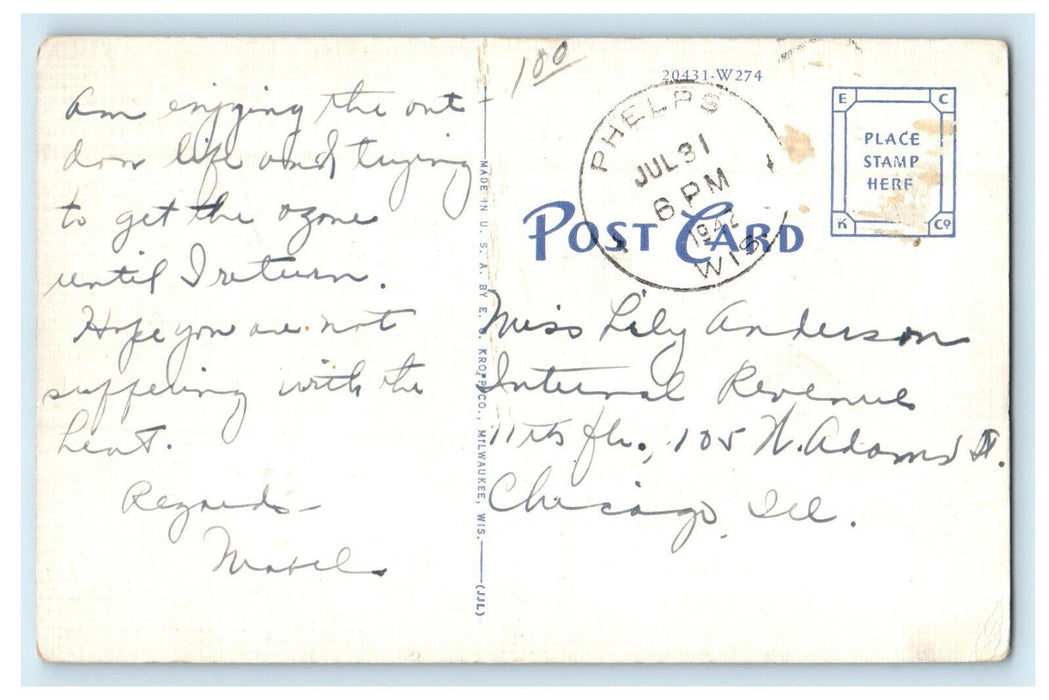 Am enjoying the out -
door life and trying
to get the ozone
until I return.
Hope you are not
suffering with the
heat.
Regards -
Mabel
MADE IN U. S. A. BY E. C. KROPP CO., MILWAUKEE, WIS.
(JJL)
100
20431-W274
PHELPS
JUL 31
6 PM
1942
WIS.
POST CARD
E C
PLACE
STAMP
HERE
K CO
Miss Lily Anderson
Internal Revenue
11th flr., 105 W. Adams St.
Chicago, Ill.